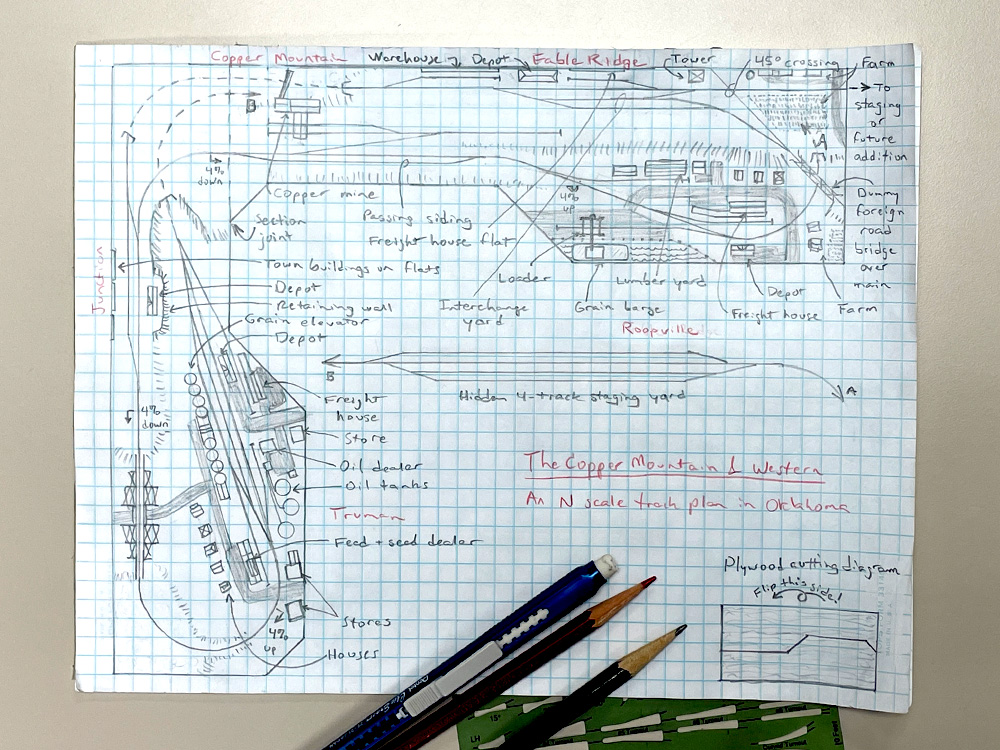 Copper Mountain
Warehouse
Depot
Fable Ridge
Tower
45° crossing
Farm
B
To
staging
or
future
addition
A
4%
down
4%
up
Copper mine
Section
joint
Passing siding
Freight house flat
Dummy
foreign
road
bridge
over
main
Junction
Town buildings on flats
Depot
Retaining wall
Grain elevator
Depot
Loader
Interchange
yard
Grain barge
Lumber yard
Roopville
Freight house
Depot
Farm
B
Hidden 4-track staging yard
A
Freight
house
4%
down
Store
Oil dealer
Oil tanks
Truman
Feed + seed dealer
The Copper Mountain & Western
An N scale track plan in Oklahoma
Plywood cutting diagram
Flip this side!
4%
up
Stores
Houses
15°
LH
#6 Turnout